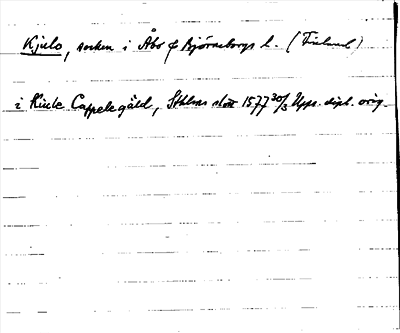 Kjulo, socken i Åbo o Björneborgs l. (Finland)
i Kiulo Cappelegäld, Sthlms slott 1577 30/3 Upps. dipl. orig.